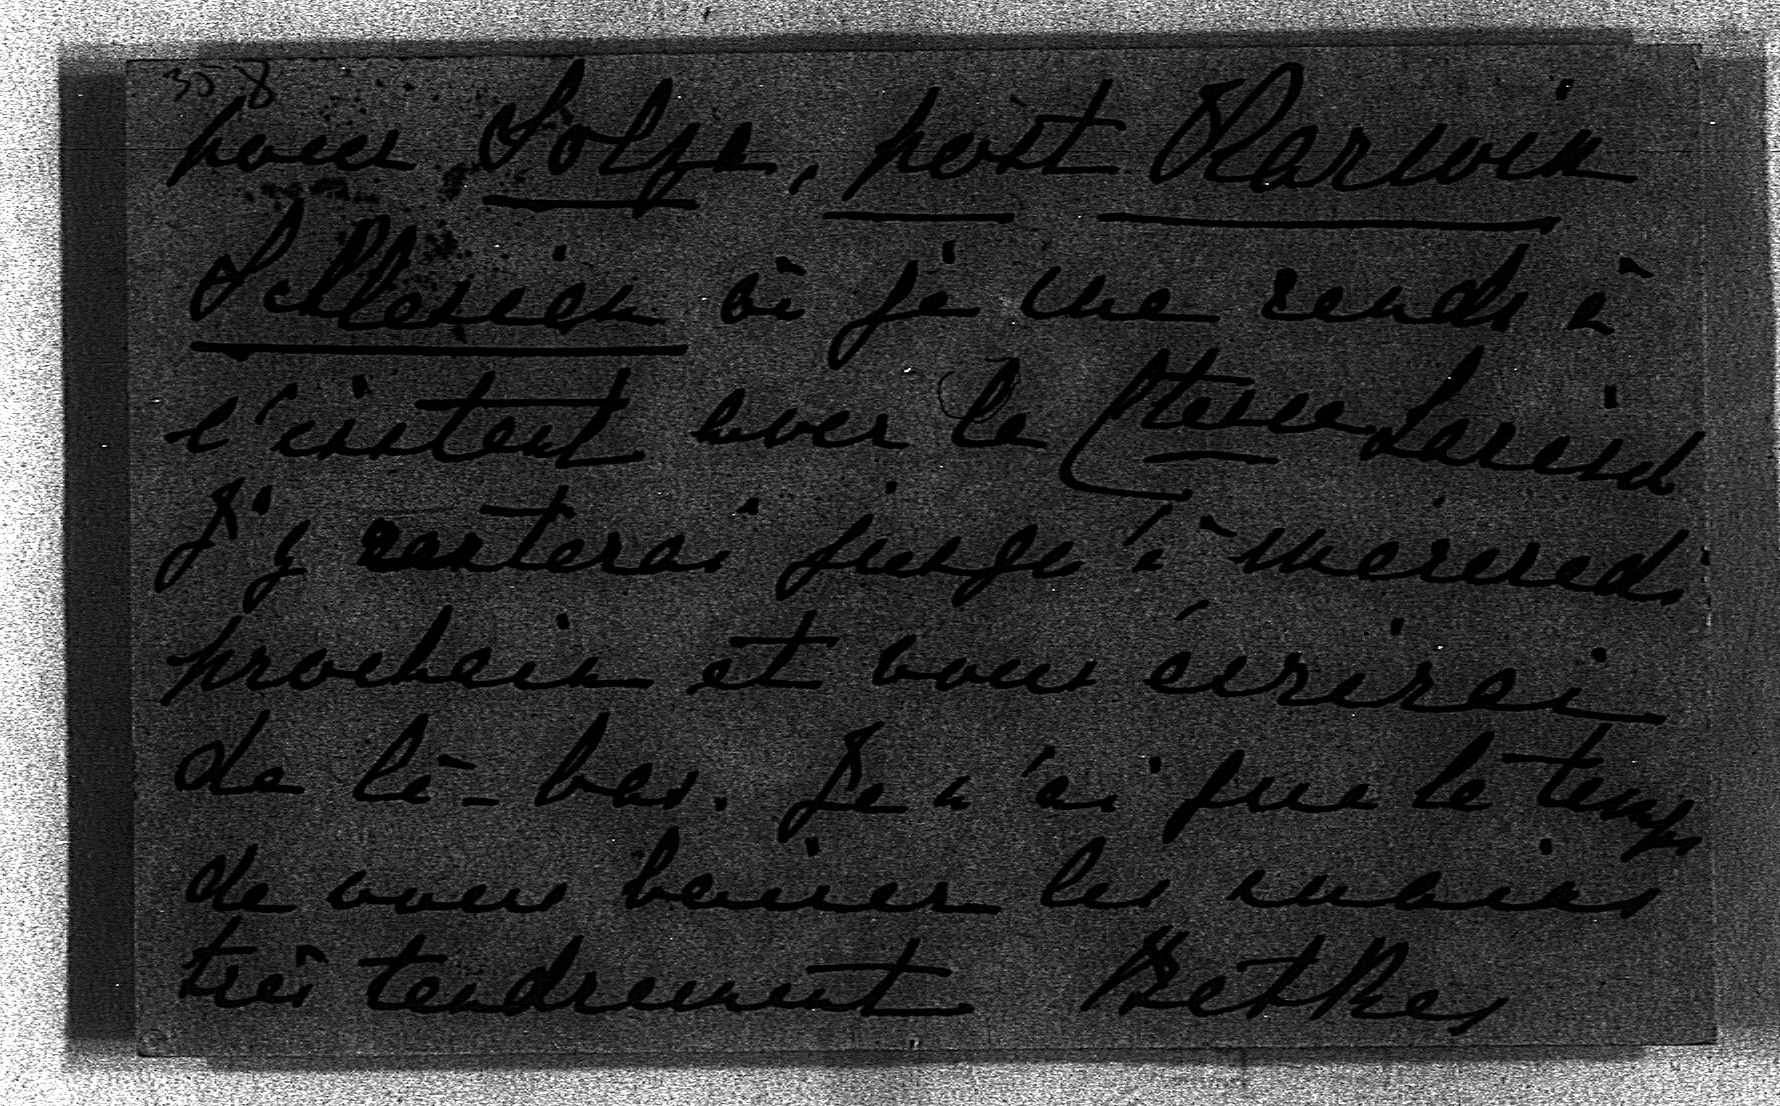 358
pour Solza, post Karwin
Schlesien où je me rends à
l'instant avec la Ctesse Larisch
J'y resterai jusqu'à mercredi
prochain et vous écrirai
de là-bas. Je n'ai que le temps
de vous baiser les mains
très tendrement